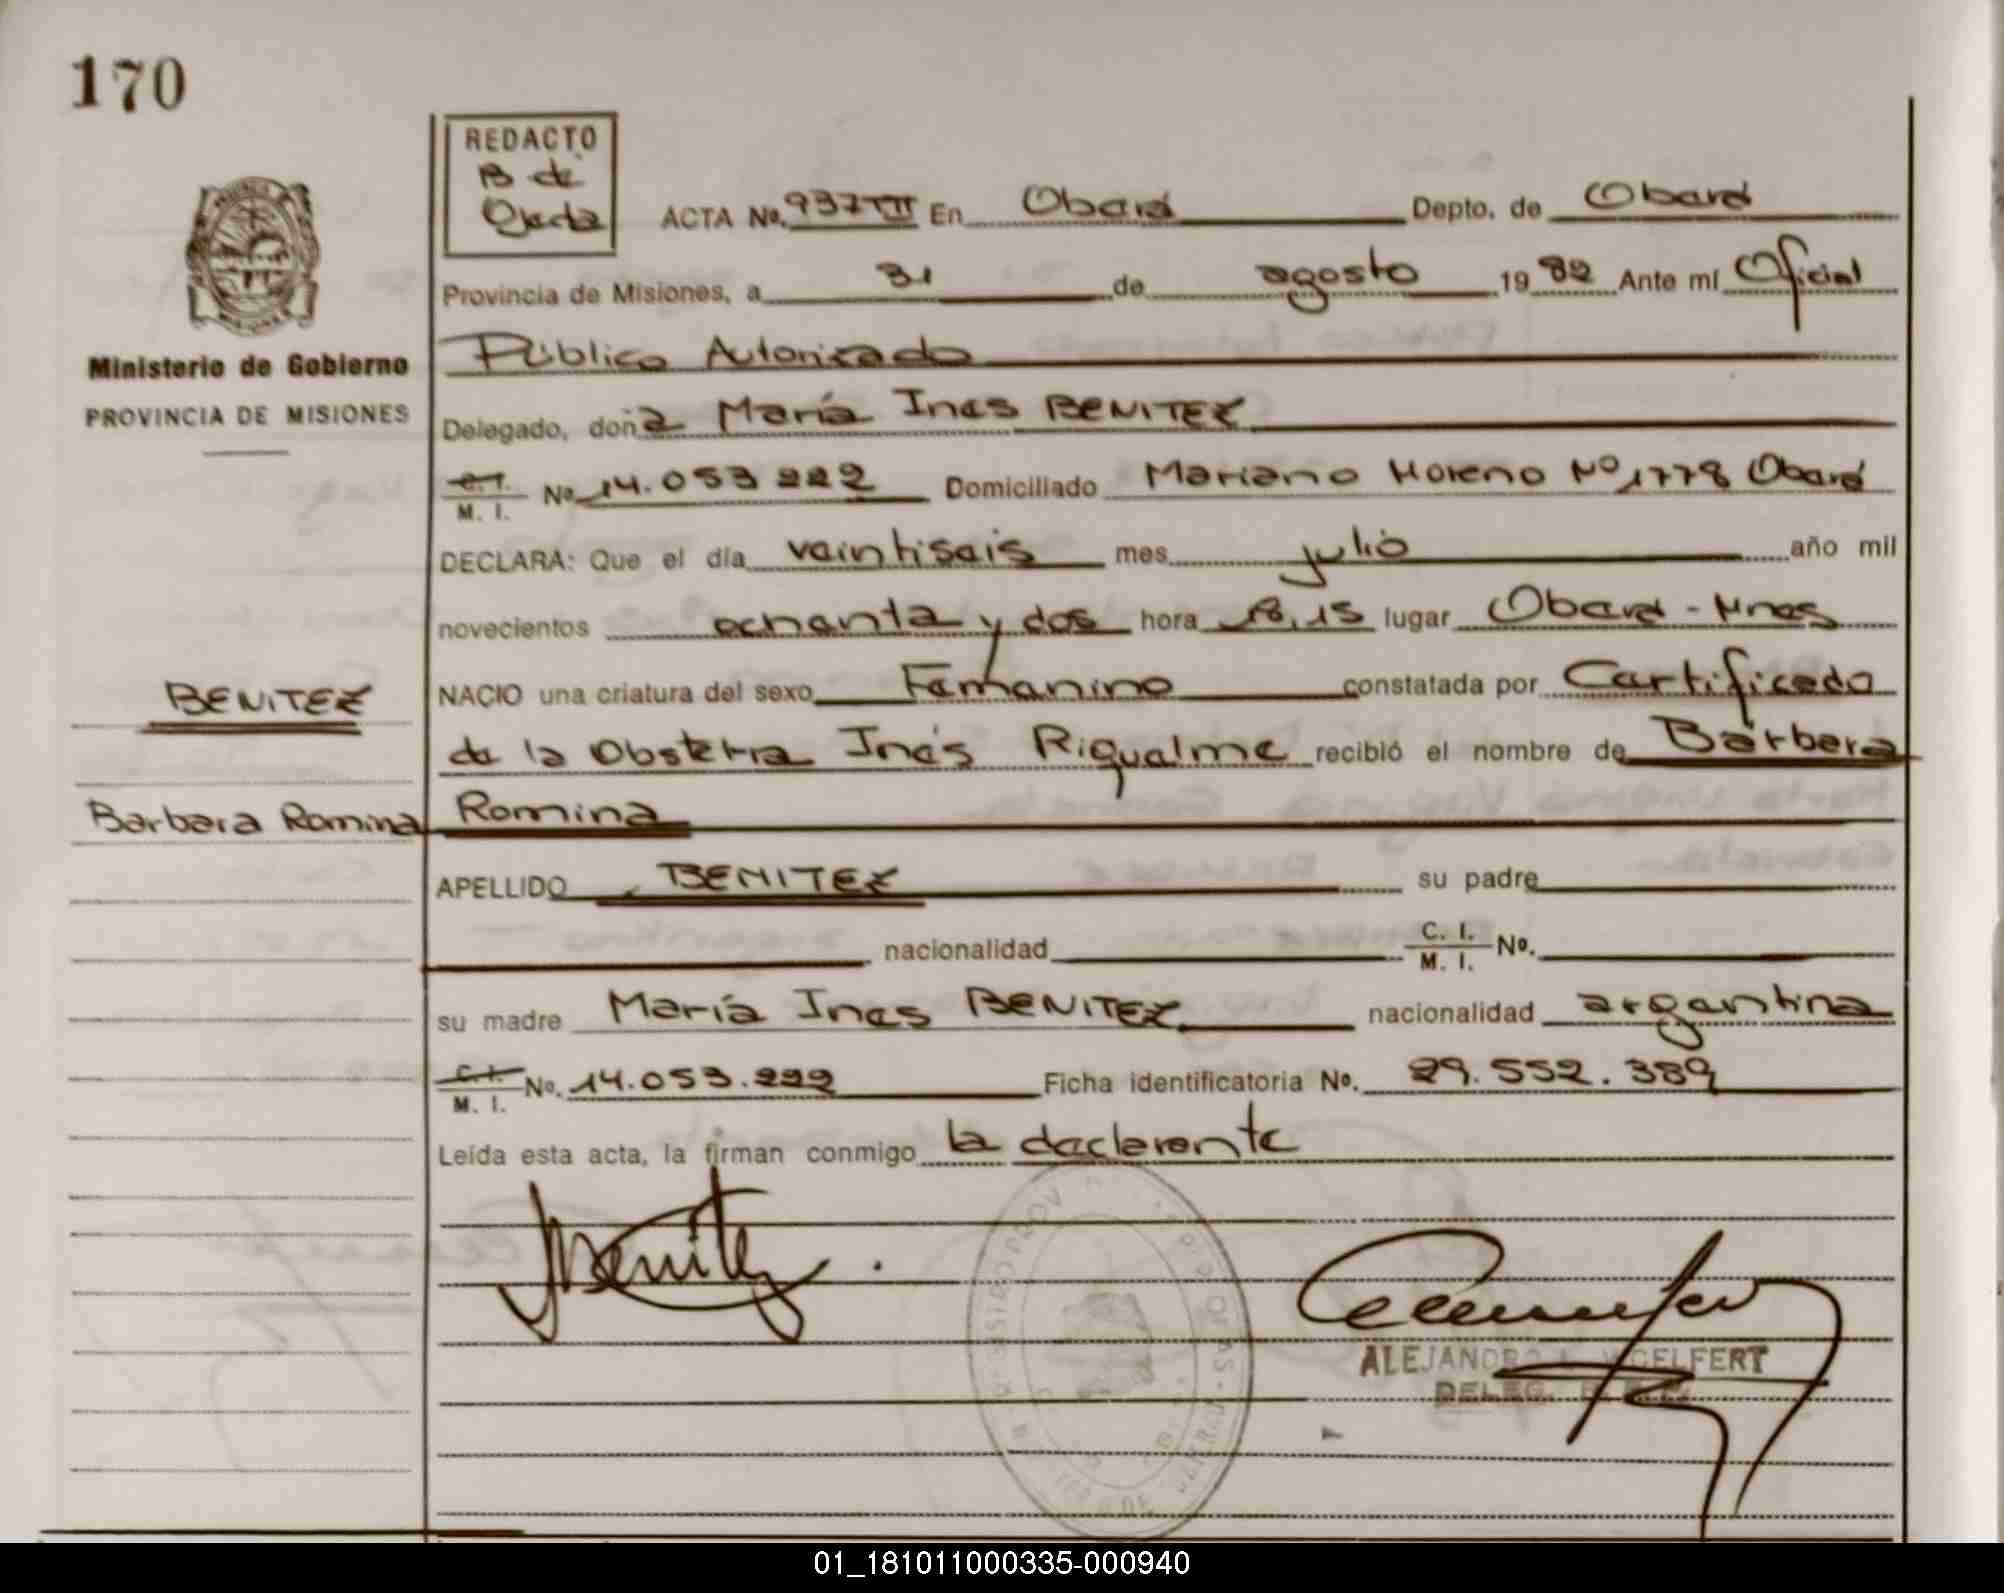 170
REDACTO
B de
Ojeda
ACTA No. 937 VII En Oberá Depto. de Oberá
Provincia de Misiones, a 31 de agosto 1982 Ante mí Oficial
Ministerio de Gobierno
Público Autorizado
PROVINCIA DE MISIONES
Delegado, doña María Ines BENITEZ
C.I. M. I. No. 14.053 222 Domiciliado Mariano Moreno Nº 1778 Oberá
DECLARA: Que el día veintiseis mes julio año mil
novecientos ochenta y dos hora 18,15 lugar Oberá - Mnes
BENITEZ
NACIO una criatura del sexo Femenino constatada por Certificado
de la Obstetra Inés Riquelme recibió el nombre de Bárbara
Barbara Romina
Romina
APELLIDO BENITEZ su padre
nacionalidad C. I. M. I. No.
su madre María Ines BENITEZ nacionalidad argentina
C. I. M. I. No. 14.053.222 Ficha identificatoria No. 29.552.389
Leída esta acta, la firman conmigo la declarente
MBenitez
ALEJANDRO WOELFERT
DELEG.
01_181011000335-000940